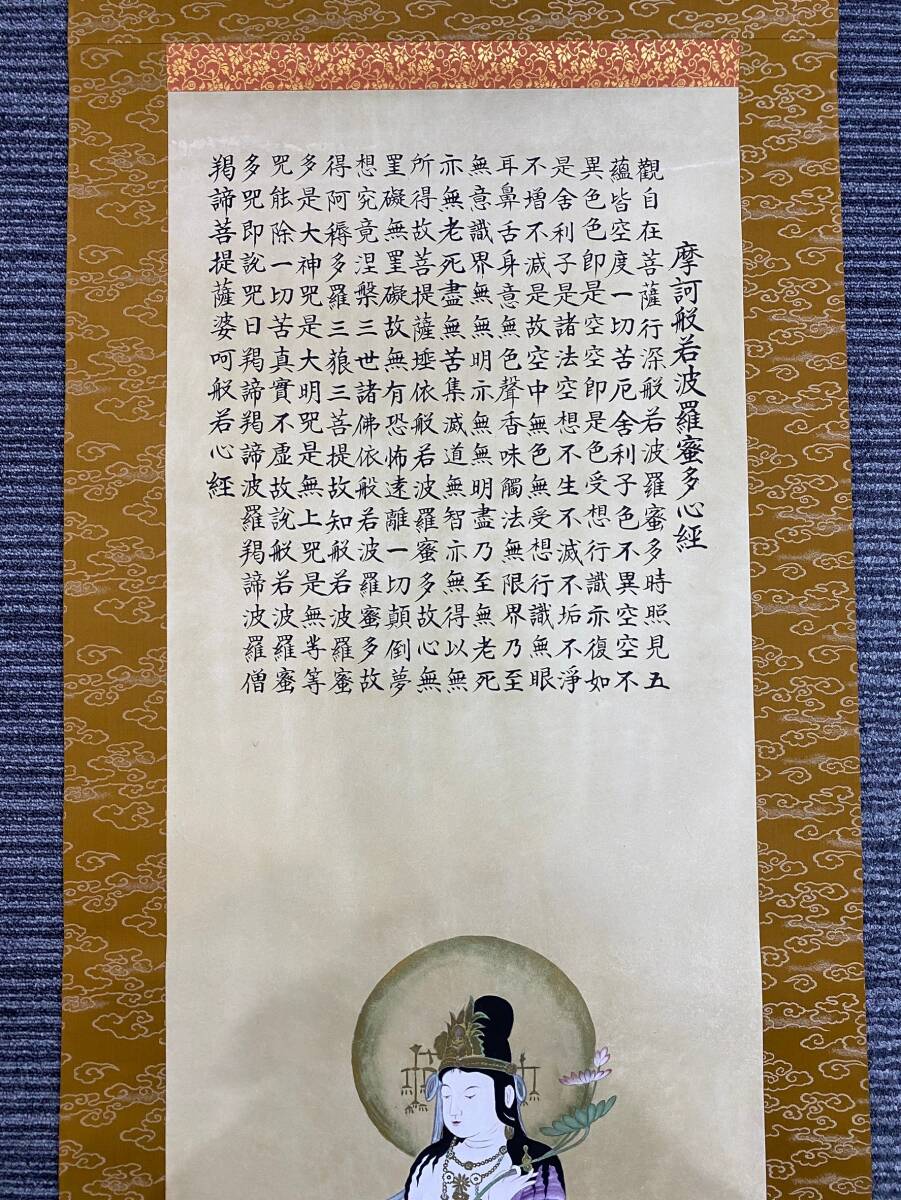 摩訶般若波羅蜜多心經
觀自在菩薩行深般若波羅蜜多時照見五
蘊皆空度一切苦厄舍利子色不異空空不
異色色即是空空即是色受想行識亦復如
是舍利子是諸法空想不生不滅不垢不淨
不增不減是故空中無色無受想行識無眼
耳鼻舌身意無色聲香味觸法無限界乃至
無意識界無無明亦無無明盡乃至無老死
亦無老死盡無苦集滅道無智亦無得以無
所得故菩提薩埵依般若波羅蜜多故心無
罣礙無罣礙故無有恐怖遠離一切顛倒夢
想究竟涅槃三世諸佛依般若波羅蜜多故
得阿耨多羅三狼三菩提故知般若波羅蜜
多是大神呪是大明呪是無上呪是無等等
呪能除一切苦真實不虛故說般若波羅蜜
多呪即說呪曰羯諦羯諦波羅羯諦波羅僧
羯諦菩提薩婆呵般若心經